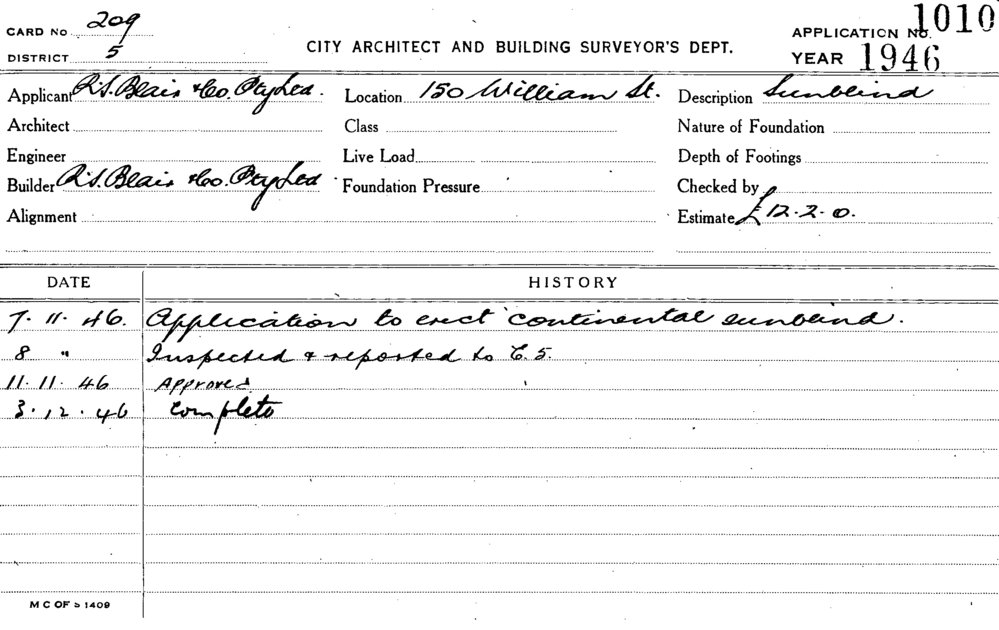 CARD No 209
DISTRICT 5
CITY ARCHITECT AND BUILDING SURVEYOR'S DEPT.
APPLICATION No. 1010
YEAR 1946
Applicant R.S. Blair & Co. Pty Ltd. Location 150 William St. Description Sunblind
Architect Class Nature of Foundation
Engineer Live Load Depth of Footings
Builder R.S. Blair & Co. Pty Ltd Foundation Pressure Checked by
Alignment Estimate £12.2.0.
DATE HISTORY
7.11.46. Application to erect continental sunblind.
8 " Inspected & reported to C.S.
11.11.46 Approved
3.12.46 Complete
M C OF S 1409